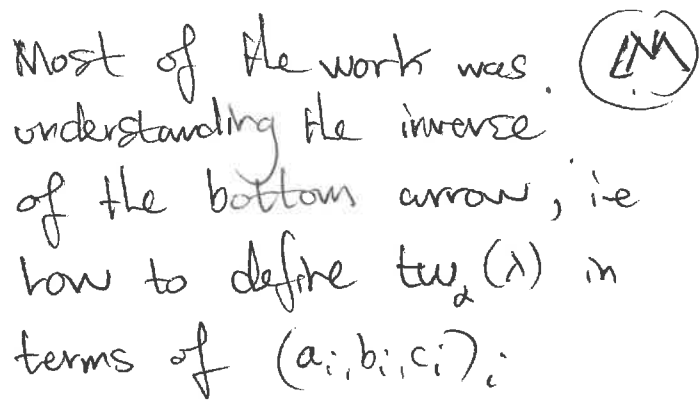 Most of the work was
understanding the inverse
of the bottom arrow, i.e
how to define tw_α(λ) in
terms of (a_i, b_i, c_i)_i